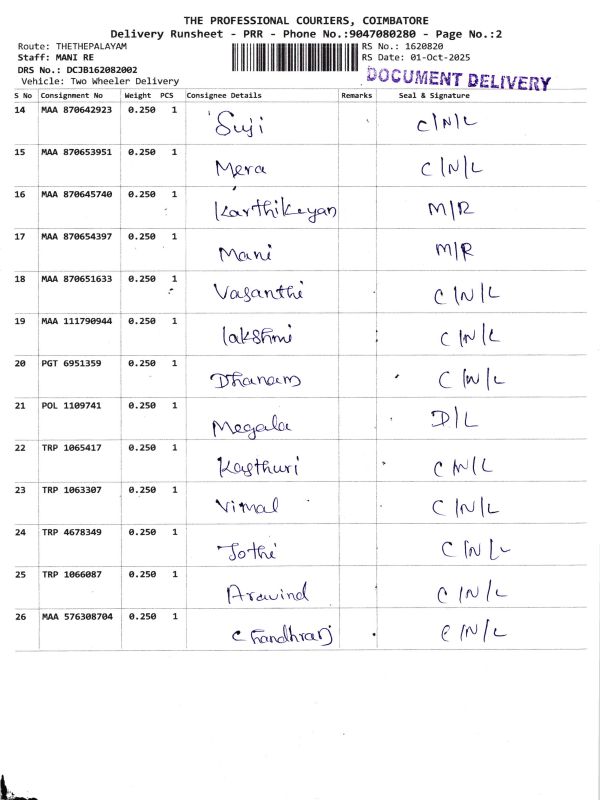 THE PROFESSIONAL COURIERS, COIMBATORE
Delivery Runsheet - PRR - Phone No.:9047080280 - Page No.:2
Route: THETHEPALAYAM RS No.: 1620820
Staff: MANI RE RS Date: 01-Oct-2025
DRS No.: DCJB162082002
Vehicle: Two Wheeler Delivery DOCUMENT DELIVERY
S No Consignment No Weight PCS Consignee Details Remarks Seal & Signature
14 MAA 870642923 0.250 1 Suji C/N/L
15 MAA 870653951 0.250 1 Mera C/N/L
16 MAA 870645740 0.250 1 Karthikeyan M/R
17 MAA 870654397 0.250 1 Mani M/R
18 MAA 870651633 0.250 1 Vasanthi C/N/L
19 MAA 111790944 0.250 1 lakshmi C/N/L
20 PGT 6951359 0.250 1 Dhanam C/N/L
21 POL 1109741 0.250 1 Megala D/L
22 TRP 1065417 0.250 1 Kasthuri C/N/L
23 TRP 1063307 0.250 1 Vimal C/N/L
24 TRP 4678349 0.250 1 Jothi C/N/L
25 TRP 1066087 0.250 1 Aravind C/N/L
26 MAA 576308704 0.250 1 Chandhran C/N/L